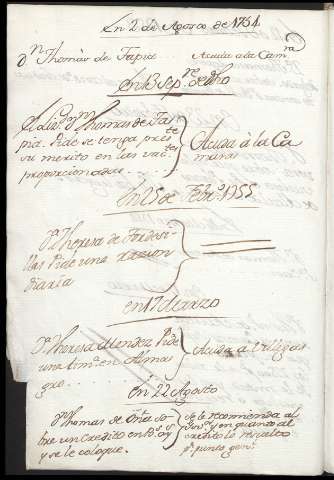 En 2 de Agosto de 1754.
Dn. Thomàs de Tapia .. Acuda a la Camra
En 13 Sepre. de dho
El Licdo. Dn. Thomas de Ta-
pia. Pide se tenga preste.
su merito en las vactes.
proporcionadas . . . .
Acuda à la Ca
maras
En 25 de Febro. 1755
Da. Theresa de Tordesi-
llas Pide una racion
diaria
en 17 Marzo
Da. Theresa Mendez Pide
una limna. en Almas
gro . . .
Acuda a Villegas
En 22 Agosto
Dn. Thomas de Oña so-
bre un credito en
y se le coloque.
Se le recomienda al
y en quanto al
credito lo resuelto
pr. punto genl.